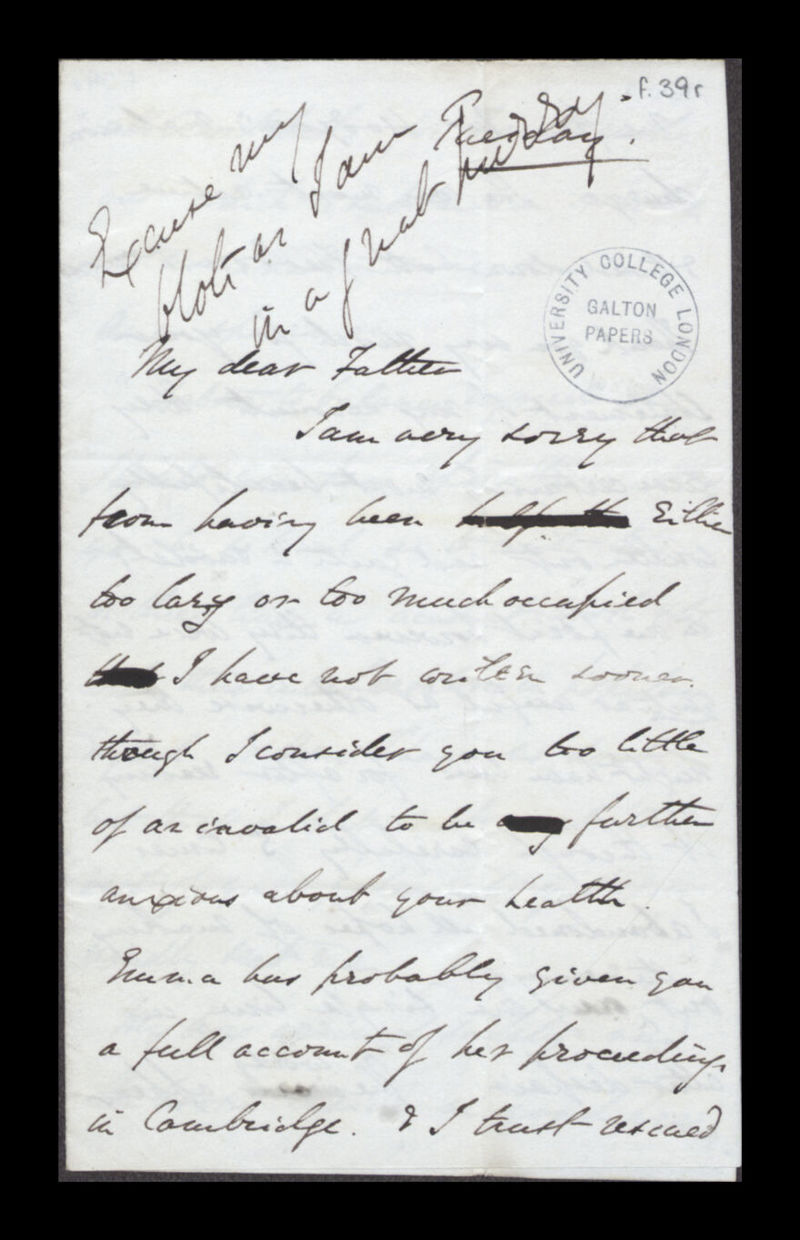 f.39r
Tuesday.
Excuse my
blots as I am
in a great hurry.
UNIVERSITY COLLEGE LONDON
GALTON
PAPERS
My dear Father
I am very sorry that
from having been Either
too lazy or too much occupied
I have not written sooner.
though I consider you too little
of an invalid to be further
anxious about your health.
Emma has probably given you
a full account of her proceedings
in Cambridge. & I trust rescued